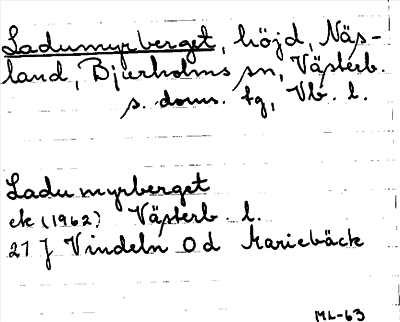 Ladumyrberget, höjd, Näs-
land, Bjurholms sn, Västerb.
s. doms. tg, Vb. l.
Ladumyrberget
ek (1962) Västerb. l.
21 J Vindeln 0 d Mariebäck
ML-63